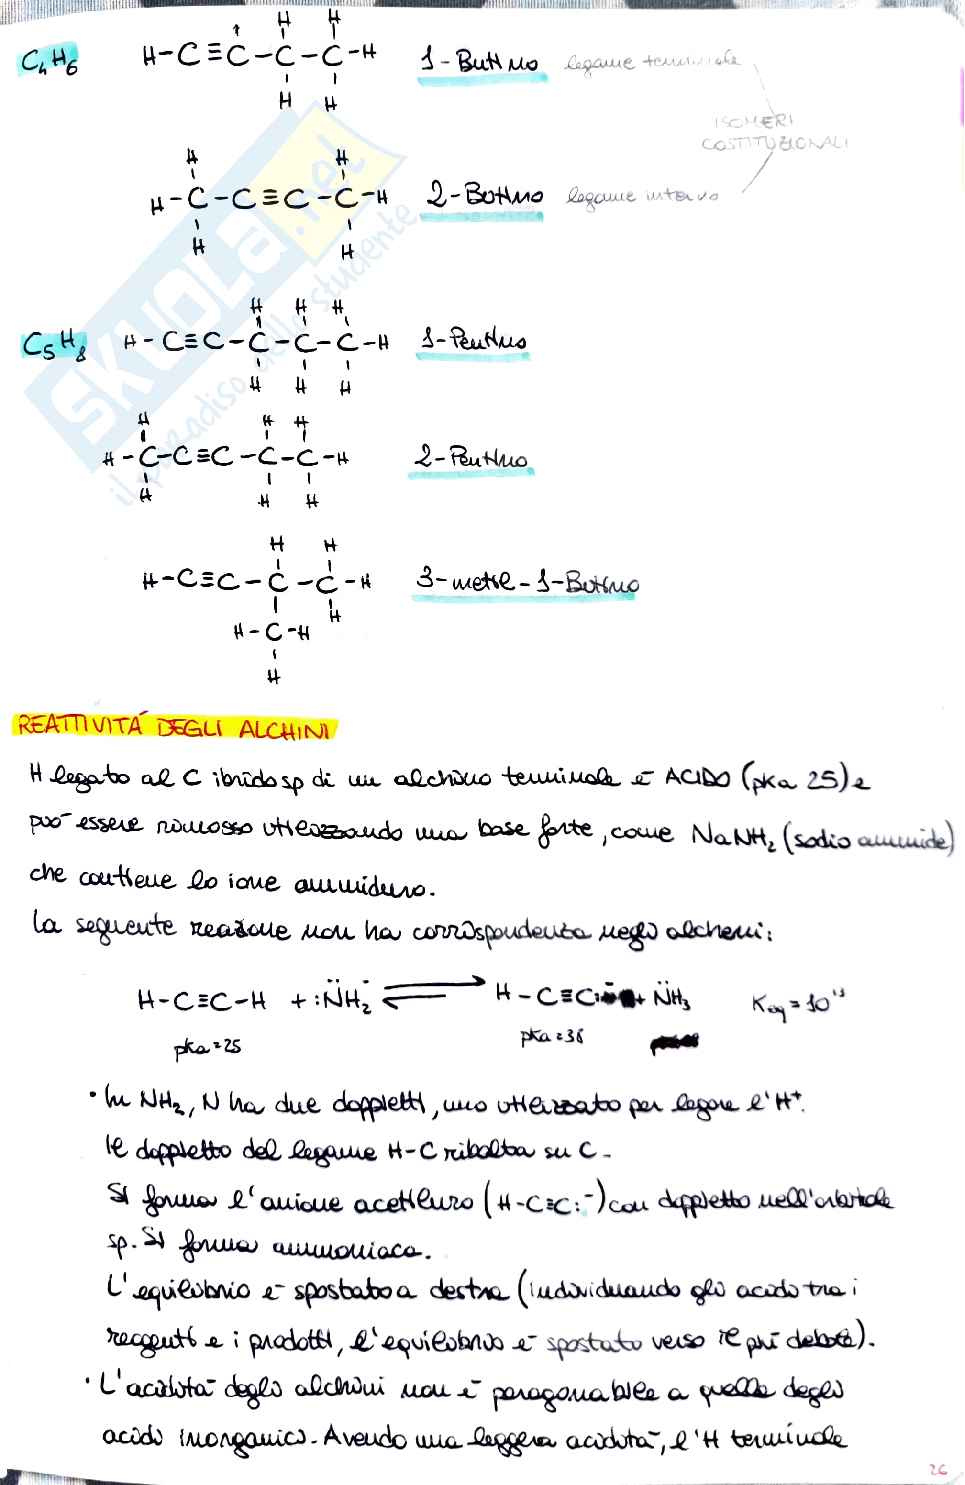 C4H6
H
H
H-C≡C-C-C-H
H
H
1-Butino
legame terminale
ISOMERI
COSTITUZIONALI
H
H
H-C-C≡C-C-H
H
H
2-Butino
legame interno
SKUOLA.net
il paradiso dello studente
C5H8
H
H
H
H-C≡C-C-C-C-H
H
H
H
1-Pentino
H
H
H
H-C-C≡C-C-C-H
H
H
H
2-Pentino
H
H
H-C≡C-C-C-H
H
H-C-H
H
3-metil-1-Butino
REATTIVITÀ DEGLI ALCHINI
H legato al C ibrido sp di un alchino terminale è ACIDO (pka 25) e
può essere rimosso utilizzando una base forte, come NaNH2 (sodio ammide)
che contiene lo ione ammiduro.
La seguente reazione non ha corrispondenza negli alcheni:
H-C≡C-H + :NH2- ⇌ H-C≡C:- + NH3 Keq=10¹³
pka=25
pka=38
• In NH2, N ha due doppietti, uno utilizzato per legare l'H+.
Il doppietto del legame H-C ribalta su C.
Si forma l'anione acetiluro (H-C≡C:-) con doppietto nell'orbitale
sp. Si forma ammoniaca.
L'equilibrio è spostato a destra (individuando gli acidi tra i
reagenti e i prodotti, l'equilibrio è spostato verso il più debole).
• L'acidità degli alchini non è paragonabile a quella degli
acidi inorganici. Avendo una leggera acidità, l'H terminale
26